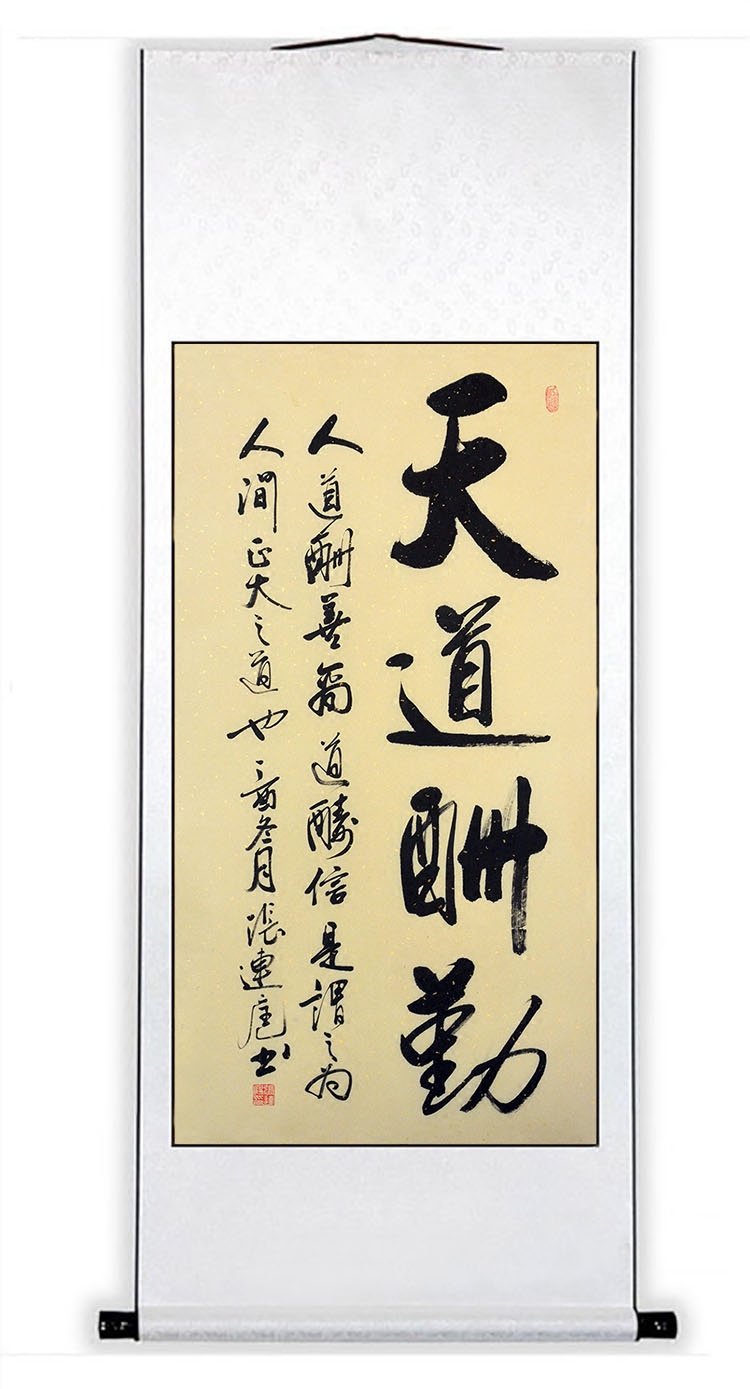 天道酬勤
人道酬善商道醻信是謂之为
人間正大之道也丁酉冬月張連庭书